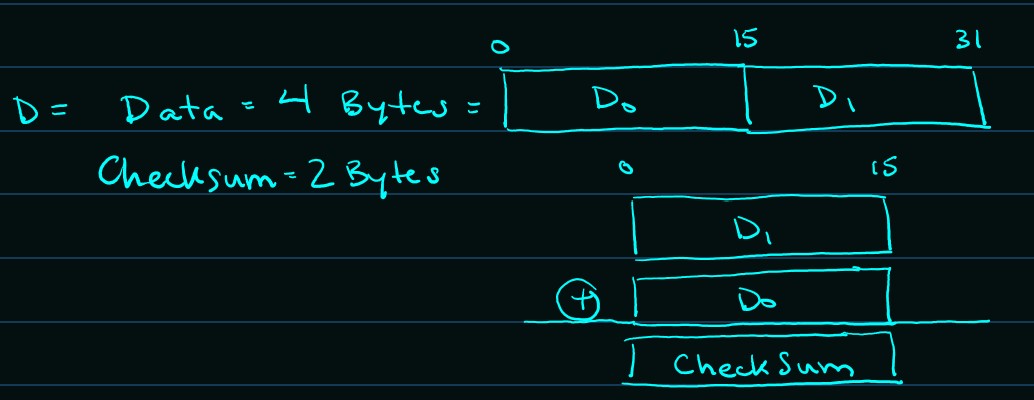 0 15 31
D = Data = 4 Bytes = D₀ D₁
Checksum = 2 Bytes 0 15
D₁
⊕ D₀
CheckSum